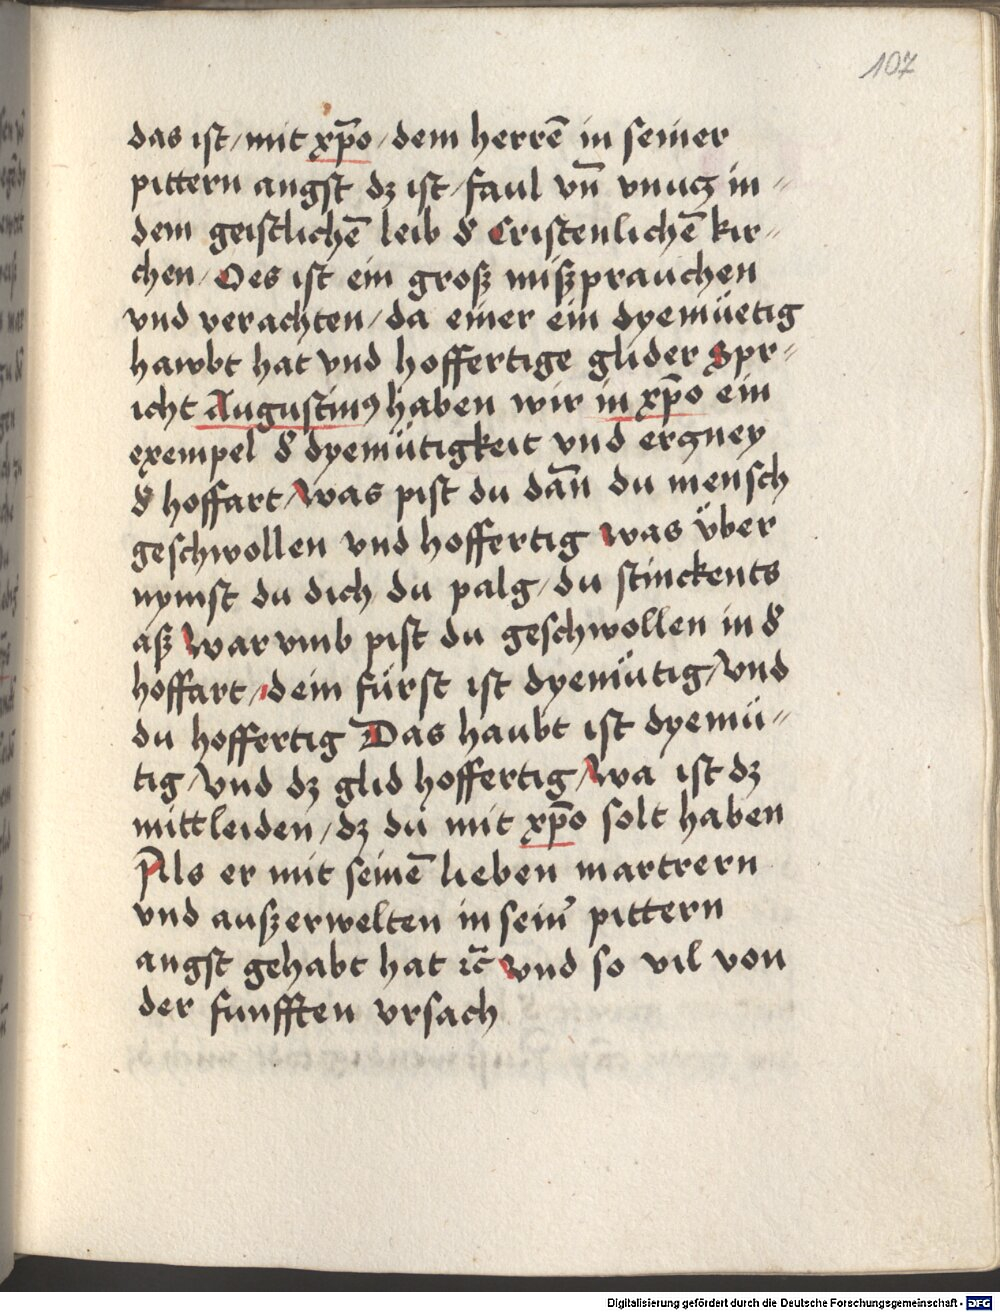 107
das ist / mit xp̄o / dem herrē in seiner
pittern angst dz ist / faul vn̄ vnutz in =
dem geistlichē leib d' Cristenlichē kir=
chen / Oes ist ein groß mißprauchen
vnd verachten / da einer ein dyemüetig
hawbt hat vnd hoffertige glider Spr=
icht Augustinꝰ haben wir in xp̄o ein
exempel d' dyemütigkeit vnd erczney
d' hoffart / Was pist du dan̄ du mensch
geschwollen vnd hoffertig was über
nymst du dich du palg / du stinckents
aß War vmb pist du geschwollen in d'
hoffart / dein fürst ist dyemütig / vnd
du hoffertig Das haubt ist dyemü=
tig / vnd dz glid hoffertig / Wa ist dz
mittleiden / dz du mit xp̄o solt haben
Als er mit seinē lieben martrern
vnd außerwelten in sein' pittern
angst gehabt hat ꝛc̄ vnd so vil von
der funfften vrsach
Digitalisierung gefördert durch die Deutsche Forschungsgemeinschaft - DFG